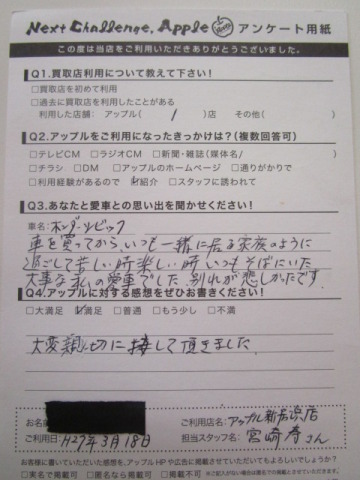 Next Challenge, Apple アンケート用紙
この度は当店をご利用いただきありがとうございました。
Q1.買取店利用について教えて下さい!
□買取店を初めて利用
□過去に買取店を利用したことがある
利用した店舗: アップル( )店 その他( )
Q2.アップルをご利用になったきっかけは?(複数回答可)
□テレビCM □ラジオCM □新聞・雑誌(媒体名/ )
□チラシ □DM □アップルのホームページ □通りがかりで
□利用経験があるので ☑紹介 □スタッフに誘われて
Q3.あなたと愛車との思い出を聞かせください!
車名: ホンダ・シビック
車を買ってから、いつも一緒に居る家族のように
過ごして苦しい時楽しい時いつもそばにいた
大事な私の愛車でした。別れが悲しかったです。
Q4.アップルに対する感想をぜひお書きください!
□大満足 ☑満足 □普通 □もう少し □不満
大変親切に接して頂きました。
お名前
ご利用店名: アップル新居浜店
ご利用日: H27年3月18日
担当スタッフ名: 宮崎 さん
お客様に書いていただいた感想を、アップルHPや広告に掲載させていただいてもよろしいでしょうか?
□実名で掲載可 □匿名なら掲載可 □掲載不可